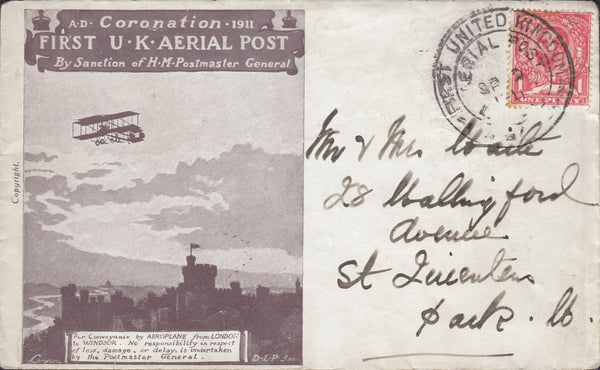 A.D. Coronation. 1911
FIRST U.K. AERIAL POST
By Sanction of H.M. Postmaster General
Copyright.
For Conveyance by AEROPLANE from LONDON
to WINDSOR. No responsibility in respect
of loss, damage, or delay, is undertaken
by the Postmaster General.
D.L.P. Inv.
FIRST UNITED KINGDOM
AERIAL POST
SP
ONE PENNY
Mr & Mrs
28 Wallingford
Avenue
St Quenten
Park. W.